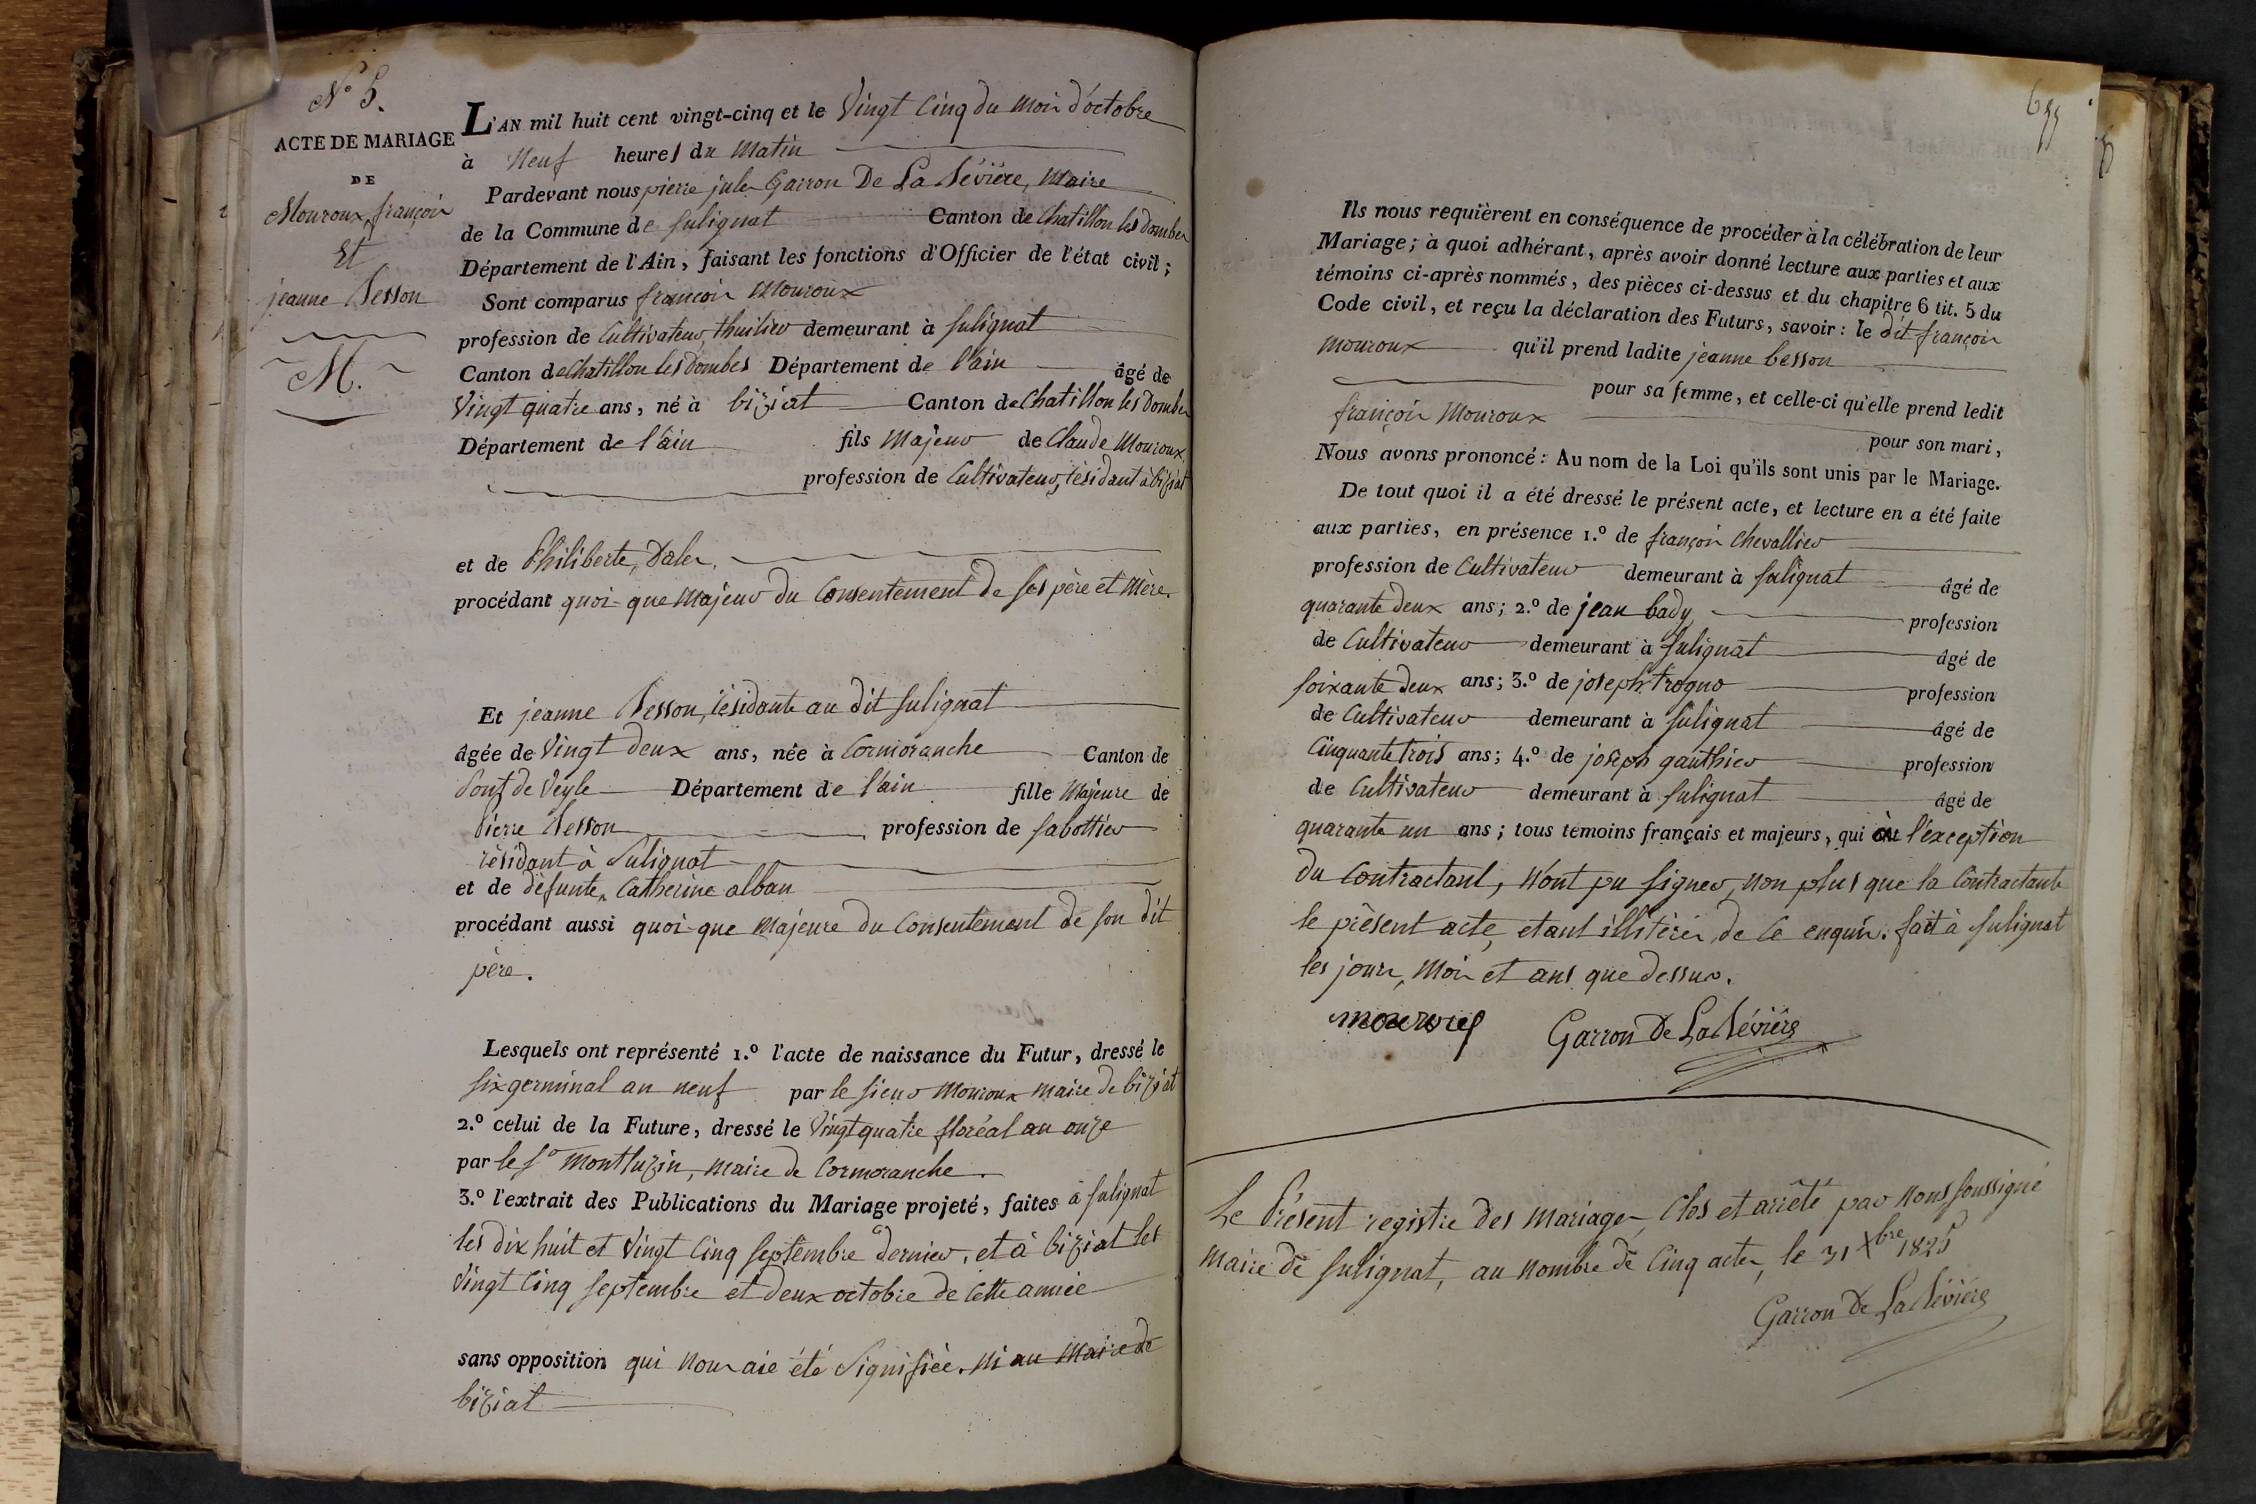 N° 5.
ACTE DE MARIAGE
DE
Mouroux, françois
Et
jeanne Besson
M.
L'AN mil huit cent vingt-cinq et le Vingt Cinq du mois d'octobre
à Neuf heures du Matin
Pardevant nous pierre jules Garron De La Bévière, Maire
de la Commune de Sulignat Canton de Chatillon les dombes
Département de l'Ain, faisant les fonctions d'Officier de l'état civil ;
Sont comparus françois Mouroux
profession de Cultivateur, thuilier demeurant à Sulignat
Canton de Chatillon les Dombes Département de l'ain âgé de
Vingt quatre ans, né à biziat Canton de Chatillon les Dombes
Département de l'ain fils Majeur de Claude Mouroux,
profession de Cultivateur, résidant à biziat
et de Philiberte, Dales,
procédant quoi-que Majeur du Consentement de ses père et Mère.
Et jeanne Besson, résidante au dit Sulignat
âgée de Vingt deux ans, née à Cormoranche Canton de
Pont de Veyle Département de l'ain fille Majeure de
Pierre Besson, profession de Sabottier
résidant à Sulignat
et de défunte, Catherine alban
procédant aussi quoi-que Majeure du Consentement de son dit
père.
Lesquels ont représenté 1.° l'acte de naissance du Futur, dressé le
six germinal an neuf par le sieur Mouroux maire de biziat
2.° celui de la Future, dressé le Vingt quatre floréal an onze
par le Sr Montluzin, maire de Cormoranche.
3.° l'extrait des Publications du Mariage projeté, faites à Sulignat
les dix huit et Vingt Cinq Septembre dernier, et à biziat les
Vingt Cinq Septembre et deux octobre de Cette année
sans opposition qui Nous aie été Signifiée. ni au Maire de
biziat
655
Ils nous requièrent en conséquence de procéder à la célébration de leur
Mariage ; à quoi adhérant, après avoir donné lecture aux parties et aux
témoins ci-après nommés, des pièces ci-dessus et du chapitre 6 tit. 5 du
Code civil, et reçu la déclaration des Futurs, savoir : le dit françois
mouroux qu'il prend ladite jeanne besson
pour sa femme, et celle-ci qu'elle prend ledit
françois Mouroux
pour son mari,
Nous avons prononcé : Au nom de la Loi qu'ils sont unis par le Mariage.
De tout quoi il a été dressé le présent acte, et lecture en a été faite
aux parties, en présence 1.° de françois Chevallier
profession de Cultivateur demeurant à Sulignat âgé de
quarante deux ans ; 2.° de jean bady profession
de Cultivateur demeurant à Sulignat âgé de
soixante deux ans ; 3.° de joseph trogno profession
de Cultivateur demeurant à Sulignat âgé de
Cinquante trois ans ; 4.° de joseph gauthier profession
de Cultivateur demeurant à Sulignat âgé de
quarante un ans ; tous temoins français et majeurs, qui à l'exception
du Contractant, N'ont pu Signer, Non plus que la Contractante
le présent acte, etant illitérés, de Ce enquis. fait à Sulignat
les jours, Mois et ans que Dessus.
Garron De La Bévière
Le Présent registre des Mariages, Clos et arrêté par Nous Soussigné
Maire de Sulignat, au Nombre de Cinq actes, le 31 Xbre 1825
Garron De La Bévière